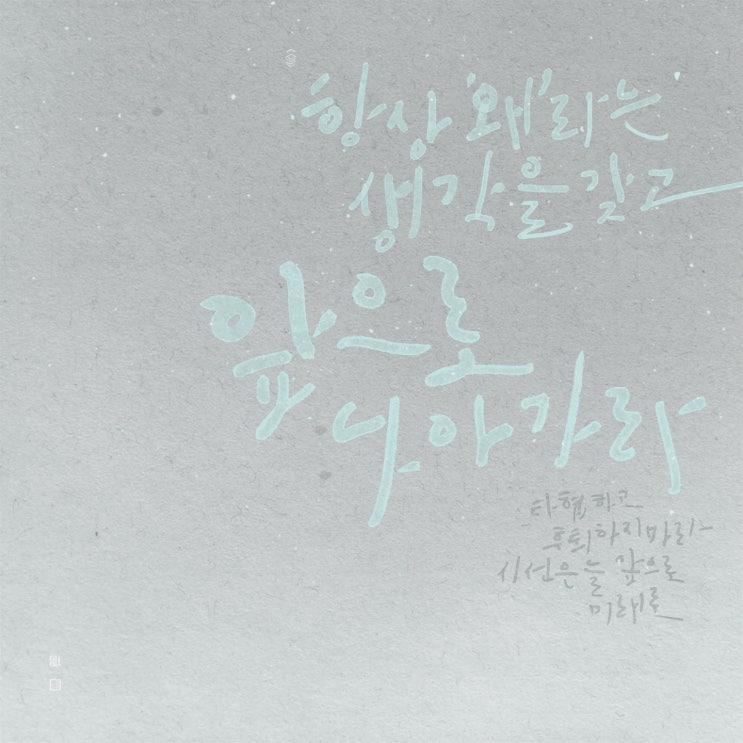 항상 '왜'라는
생각을 갖고
앞으로
나아가라
타협하고
후퇴하지마라
시선은 늘 앞으로
미래로